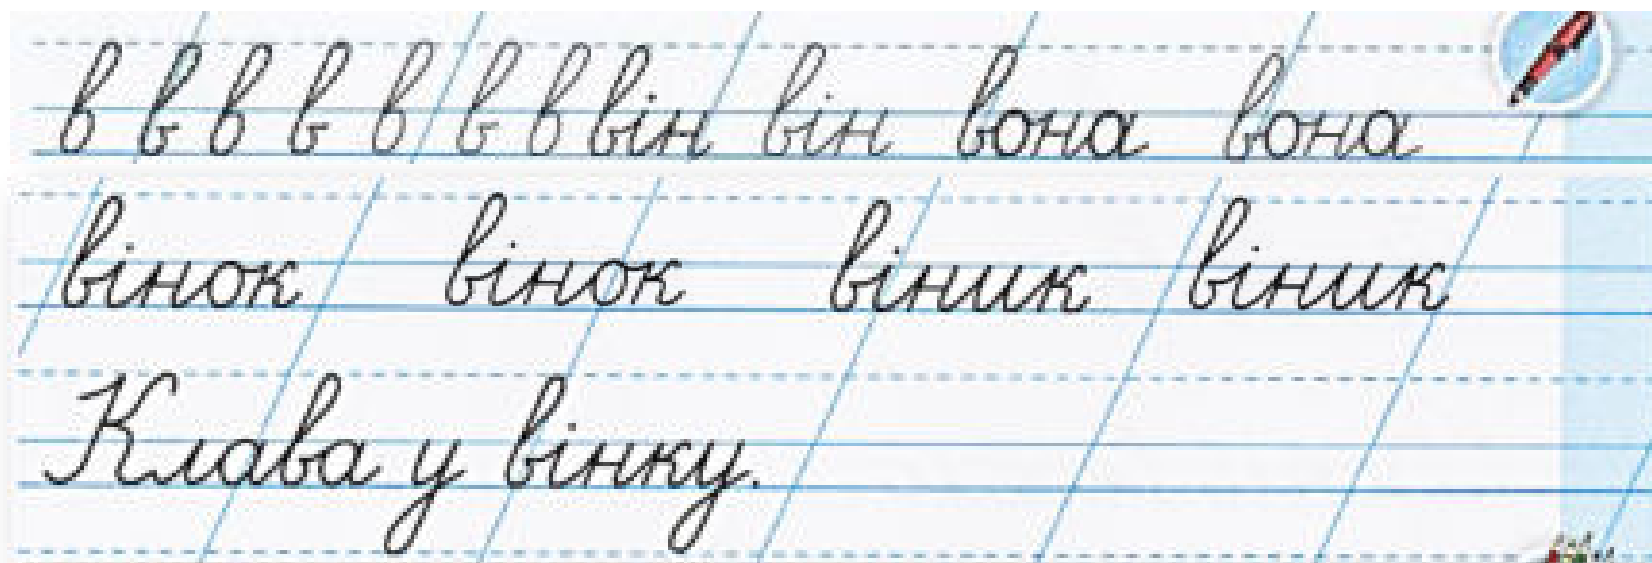 в в в в в в в він він вона вона
вінок вінок віник віник
Клава у вінку.